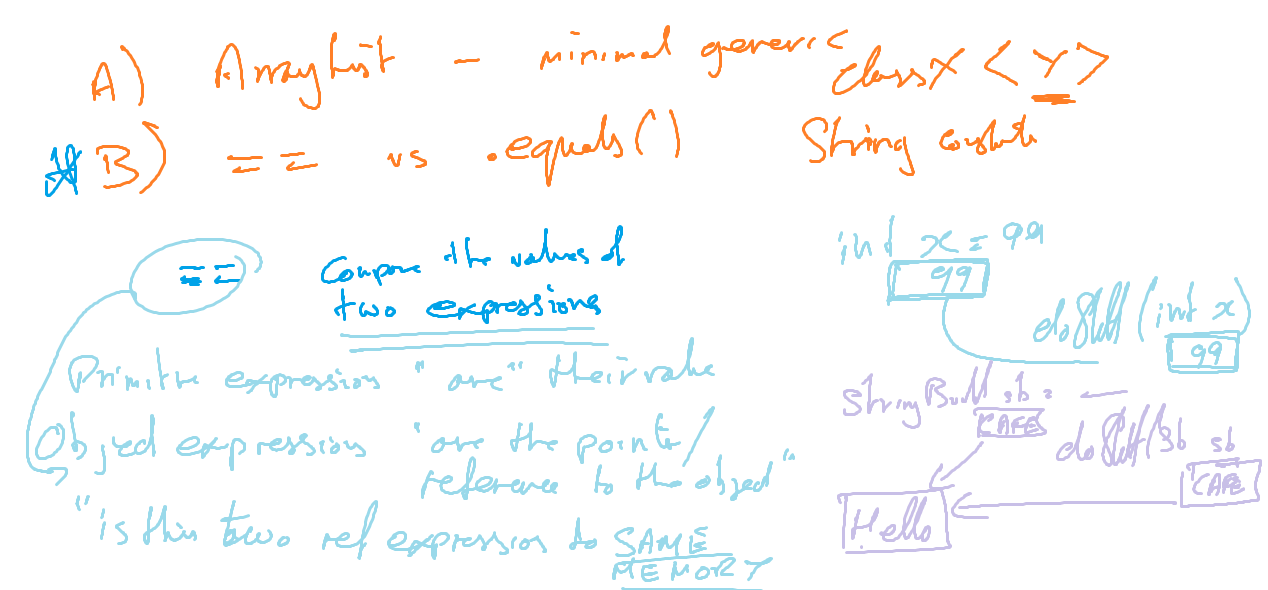 A) ArrayList - minimal generic class X <Y>
B) == vs .equals() String
== Compare the values of
two expressions
Primitive expressions "are" their value
Object expressions "are the pointer/
reference to the object"
"is this two ref expression to SAME
MEMORY
int x = 99
99
doStuff (int x)
99
StringBuild sb =
CAFE
doStuff(sb sb
CAFE
Hello